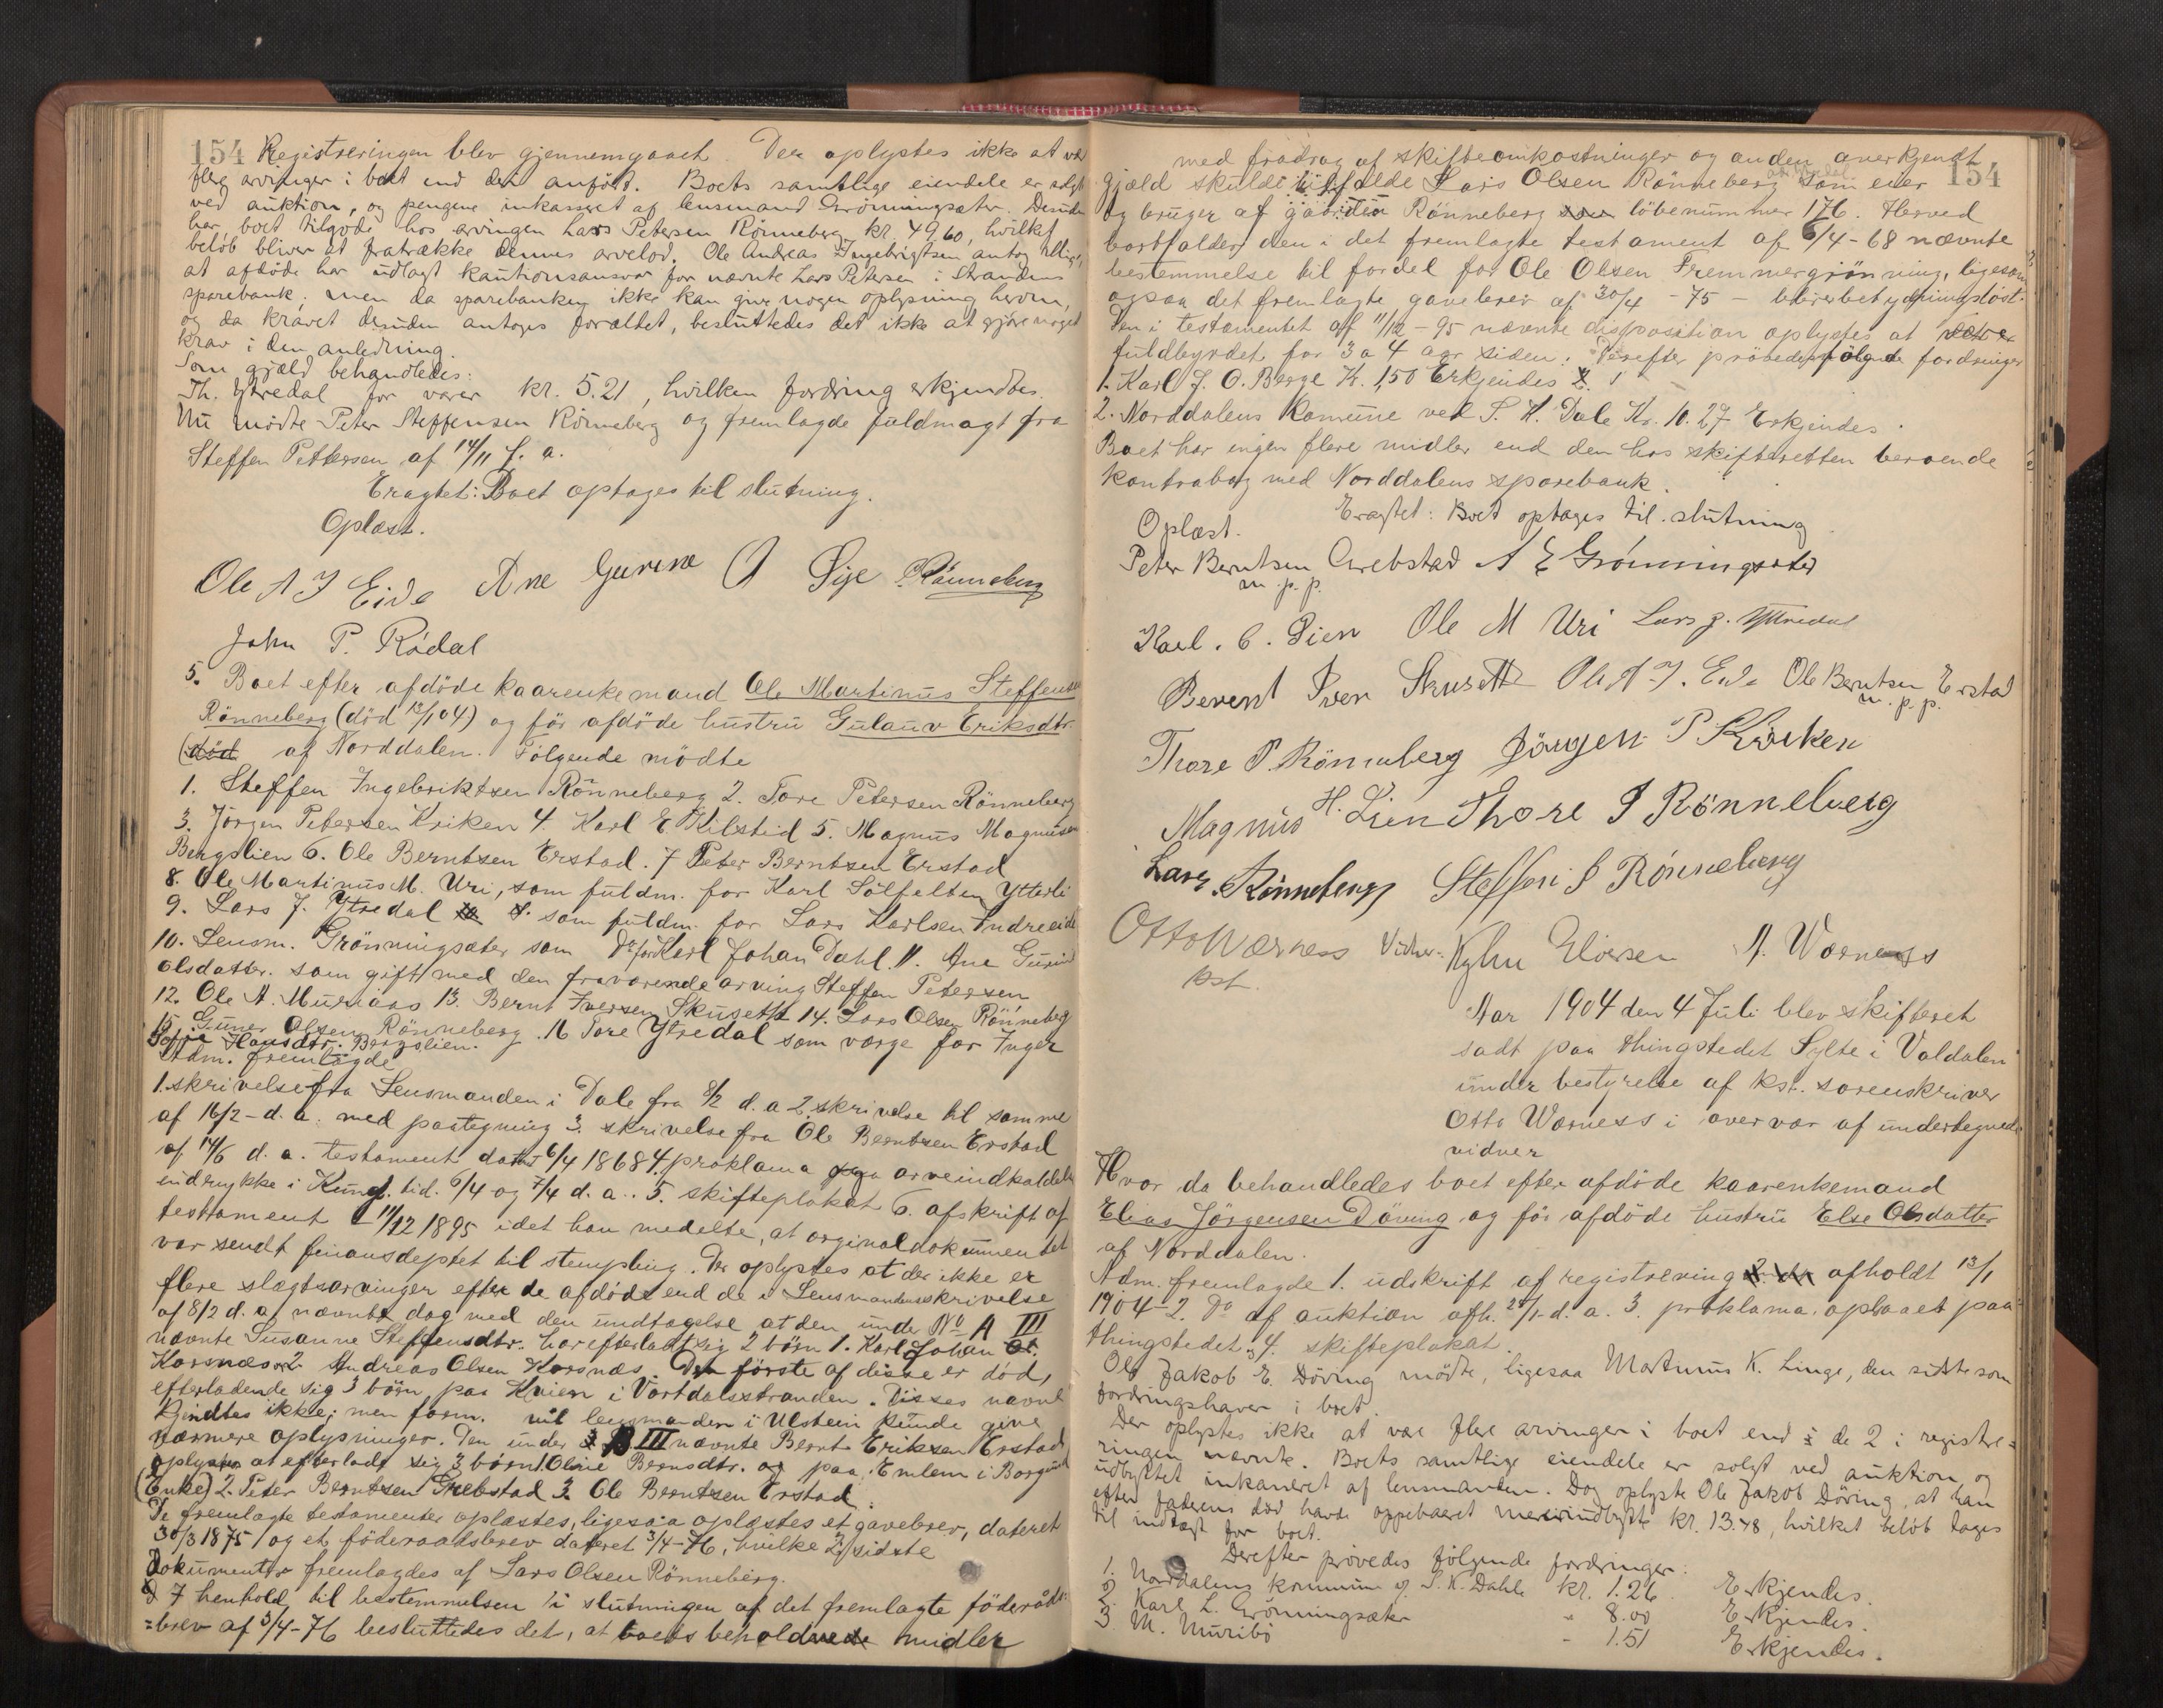 154 Registreringen blev gjennemgaaet. Der oplystes ikke at vær
flere arvinger i boet end der anført. Boets samtlige eiendele er solgt
ved auktion, og pengene inkasseret af lensmand Grönningsæter. Desuden
har boet tilgode hos arvingen Lars Petersen Rönneberg kr. 49,60, hvilket
belöb bliver at fratrække dennes arvelod. Ole Andreas Ingebrigtsen antog tillige,
at afdöde har udlagt kautionsansvar for nævnte Lars Petersen i Strandens
sparebank; men da sparebanken ikke kan give nogen oplysning herom,
og da kravet desuden antoges forældet, besluttedes det ikke at gjöre noget
krav i den anledning.
Som gjæld behandledes:
Th. Ytredal for varer kr. 5.21, hvilken fordring erkjendtes.
Nu mödte Peter Steffensen Rönneberg og fremlagde fuldmagt fra
Steffen Pettersen af 14/11 f. a.
Eragtet: Boet optages til slutning.
Oplæst.
Ole A I Eide Ane Gurine O Lije Rönneberg
John P. Rödal
5. Boet efter afdöde kaarenkemand Ole Martinus Steffensen
Rönneberg (död 12/1 04) og för afdöde hustru Gulauv Eriksdtr.
(död af Norddalen. Fölgende mödte
1. Steffen Ingebriktsen Rönneberg 2. Tore Petersen Rönneberg
3. Jörgen Petersen Kriken 4. Karl E Kilstid 5. Magnus Magnusen
Bergslien 6. Ole Berntsen Erstad. 7 Peter Berntsen Erstad
8. Ole Martinus M. Uri, som fuldm. for Karl Sölfelten Ytterli
9. Lars J. Ytredal som fuldm. for Lars Karlsen Indreeide
10. Lensm. Grönningsæter som Do for Karl Johan Dahl. 11. Ane Gurine
Olsdatter. som gift med den fraværende arving Steffen Petersen
12. Ole A. Muriaas 13. Bernt Iversen Skusetth 14. Lars Olsen Rönneberg
15. Guner Olsen Rönneberg. 16 Tore Ytredal som værge for Inger
Sofie Hansdtr. Bergslien.
Adm. fremlagde
1. skrivelse fra Lensmanden i Dale fra 8/2 d. a 2. skrivelse til samme
af 16/2 - d. a. med paategning 3. skrivelse fra Ole Berntsen Erstad
af 14/6 d. a. testament datert 6/4 1868 4. proklama arveindkaldels
indrykke i Kung. tid. 6/4 og 7/4 d. a.. 5. skifteplakat 6. afskrift af
testament 11/12 1895 idet han medelte, at orginaldokumentet
var sendt finansdeptet til stempling. Der oplystes at der ikke er
flere slægtsarvinger efter de afdöde end de i Lensmandens skrivelse
af 8/2 d. a nævnte dog med den undtagelse at den under No A III
nævnte Susanne Steffensdtr. har efterladt sig 2 börn 1. Karl Johan
Korsnæs 2 Andreas Olsen Korsnæs. Den förste af disse er död,
efterladende sig 3 börn paa Kvien i Vartdalsstranden. Disses navne
kjendtes ikke; men form. vil lensmanden i Ulstein kunde give
nærmere oplysninger. Den under B III nævnte Bernt Eriksen Erstad
oplystes at efterladt sig 3 börn 1. Oline Bernsdtr. paa Emlem i Borgund
(Enke) 2. Peter Berntsen Grebstad 3. Ole Berntsen Erstad.
De fremlagte testamenter oplæstes, ligesaa oplæstes et gavebrev, dateret
30/3 1875 og et föderaadsbrev dateret 3/4-76, hvilke 2 sidste
Dokumenter fremlagdes af Lars Olsen Rönneberg.
I henhold til bestemmelsen i slutningen af det fremlagte föderåds=
=brev af 3/4-76 besluttedes det, at boets beholdne midler
med fradrag af skifteomkostninger og anden anerkjendt 154
gjæld skulde tilfalde Lars Olsen Rönneberg som eier
og bruger af gaarden Rönneberg löbenummer 176. Herved
bortfalder den i det fremlagte testament af 6/4-68 nævnte
bestemmelse til fordel for Ole Olsen Fremmergjönning, ligesom
ogsaa det fremlagte gavebrev af 30/4 - 75 - bliver betydningslöst.
Den i testamentet af 11/12-95 nævnte disposition oplystes at være
fuldbyrdet for 3 a 4 aar siden. Derefter prövedes fölgende fordringer
1. Karl J. O. Berge Kr. 1,50 Erkjendes
2. Norddalens komune ved S. K. Dale Kr. 10.27 Erkjendes.
Boet har ingen flere midler end den hos skifteretten beroende
kontrabog med Norddalens sparebank.
Eragtet: Boet optages til slutning
Oplæst.
Peter Berntsen Grebstad A E Grönningsæter
m. p. p.
Karl. C. Lien Ole M Uri Lars J. Yttredal
Berent Iver Skusetth Ole A I. Eide Ole Berntsen Erstad
m. p. p.
Thore P. Rönneberg Jörgen P Kriken
Magnus H. Lien Thore P Rönneberg
Lars Rönneberg Steffen I Rönneberg
Otto Wærness Vidner: A. Wærness
kst.
Aar 1904 den 4 Juli blev skifteret
sadt paa thingstedet Sylte i Valdalen
under bestyrelse af kst. sorenskriver
Otto Wærness i overvær af undertegnede
vidner
Hvor da behandledes boet efter afdöde kaarenkemand
Elias Jörgensen Döving og för afdöde hustru Else Olsdatter
af Norddalen.
Adm. fremlagde 1. udskrift af registrering afholdt 13/1
1904 - 2. Do af auktion afh. 28/1 d. a. 3. proklama oplæst paa
thingstedet. 4. skifteplakat.
Ole Jakob E. Döving mödte, ligesaa Martinus K. Linge, den sidste som
fordringshaver i boet.
Der oplystes ikke at være flere arvinger i boet end de 2 i registre=
ringen nævnte. Boets samtlige eiendele er solgt ved auktion, og
udbyttet inkasseret af lensmanden. Dog oplyste Ole Jakob Döving, at han
efter faderens död havde oppebaaret meieriudbytte kr. 13.48, hvilket belöb tages
til indtægt for boet.
Derefter prövedes fölgende fordringer:
1. Norddalens kommune v. S. K. Dahle kr. 1.26 Erkjendes.
2. Karl L. Grönningsæter " 8.00 Erkjendes.
3. M. Muribö " 1.51 Erkjendes.